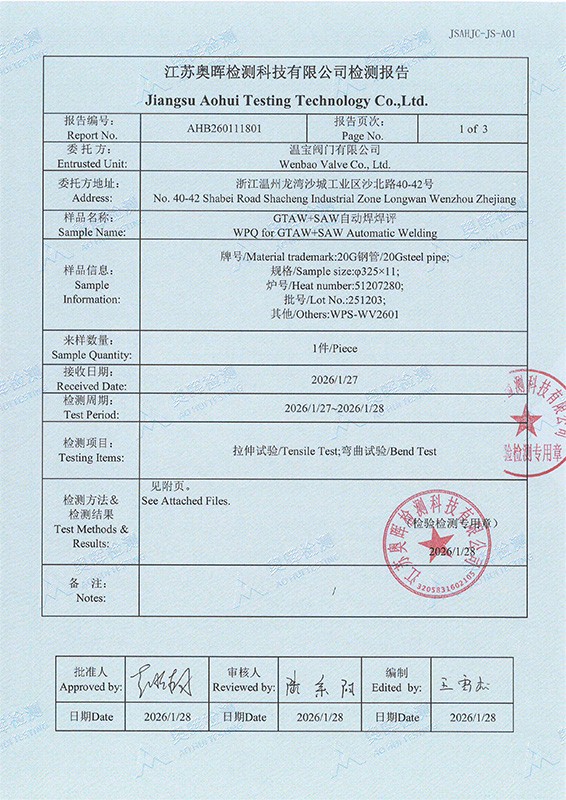 JSAHJC-JS-A01
江苏奥晖检测科技有限公司检测报告
Jiangsu Aohui Testing Technology Co.,Ltd.
报告编号:
Report No.
AHB260111801
报告页次:
Page No.
1 of 3
委 托 方:
Entrusted Unit:
温宝阀门有限公司
Wenbao Valve Co., Ltd.
委托方地址:
Address:
浙江温州龙湾沙城工业区沙北路40-42号
No. 40-42 Shabei Road Shacheng Industrial Zone Longwan Wenzhou Zhejiang
样品名称:
Sample Name:
GTAW+SAW自动焊焊评
WPQ for GTAW+SAW Automatic Welding
样品信息:
Sample
Information:
牌号/Material trademark:20G钢管/20Gsteel pipe;
规格/Sample size:φ325×11;
炉号/Heat number:51207280;
批号/Lot No.:251203;
其他/Others:WPS-WV2601
来样数量:
Sample Quantity:
1件/Piece
接收日期:
Received Date:
2026/1/27
检测周期:
Test Period:
2026/1/27~2026/1/28
检测项目:
Testing Items:
拉伸试验/Tensile Test;弯曲试验/Bend Test
检测方法&
检测结果
Test Methods &
Results:
见附页。
See Attached Files.
(检验检测专用章)
2026/1/28
江苏奥晖检测科技有限公司
3205831602105
验检测专用章
备 注:
Notes:
/
批准人
Approved by:
审核人
Reviewed by:
编制
Edited by:
日期Date
2026/1/28
日期Date
2026/1/28
日期Date
2026/1/28